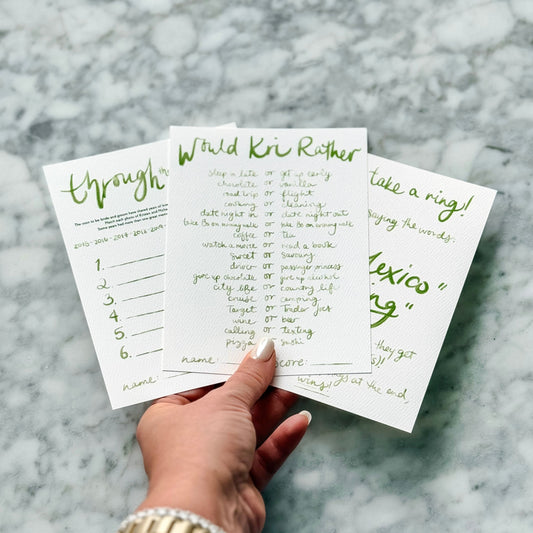 through the
The soon to be bride and groom have shared years of
Match each photo of
Some years had more than one great
2015 - 2016 - 2017 - 2018 - 2019 -
1.
2.
3.
4.
5.
6.
name:
Would Kri Rather
sleep in late or get up early
chocolate or vanilla
road trip or flight
cooking or cleaning
date night in or date night out
bike 50 on away walk or bike 50 on away walk
coffee or tea
watch a movie or read a book
sweet or savoury
driver or passenger princess
give up chocolate or give up alcohol
city life or country life
cruise or camping
Target or Trader Joes
wine or beer
calling or texting
pizza or sushi
name: score:
take a ring!
saying the words:
Mexico"
ng"
they get
s)!
rings at the end,
wins!